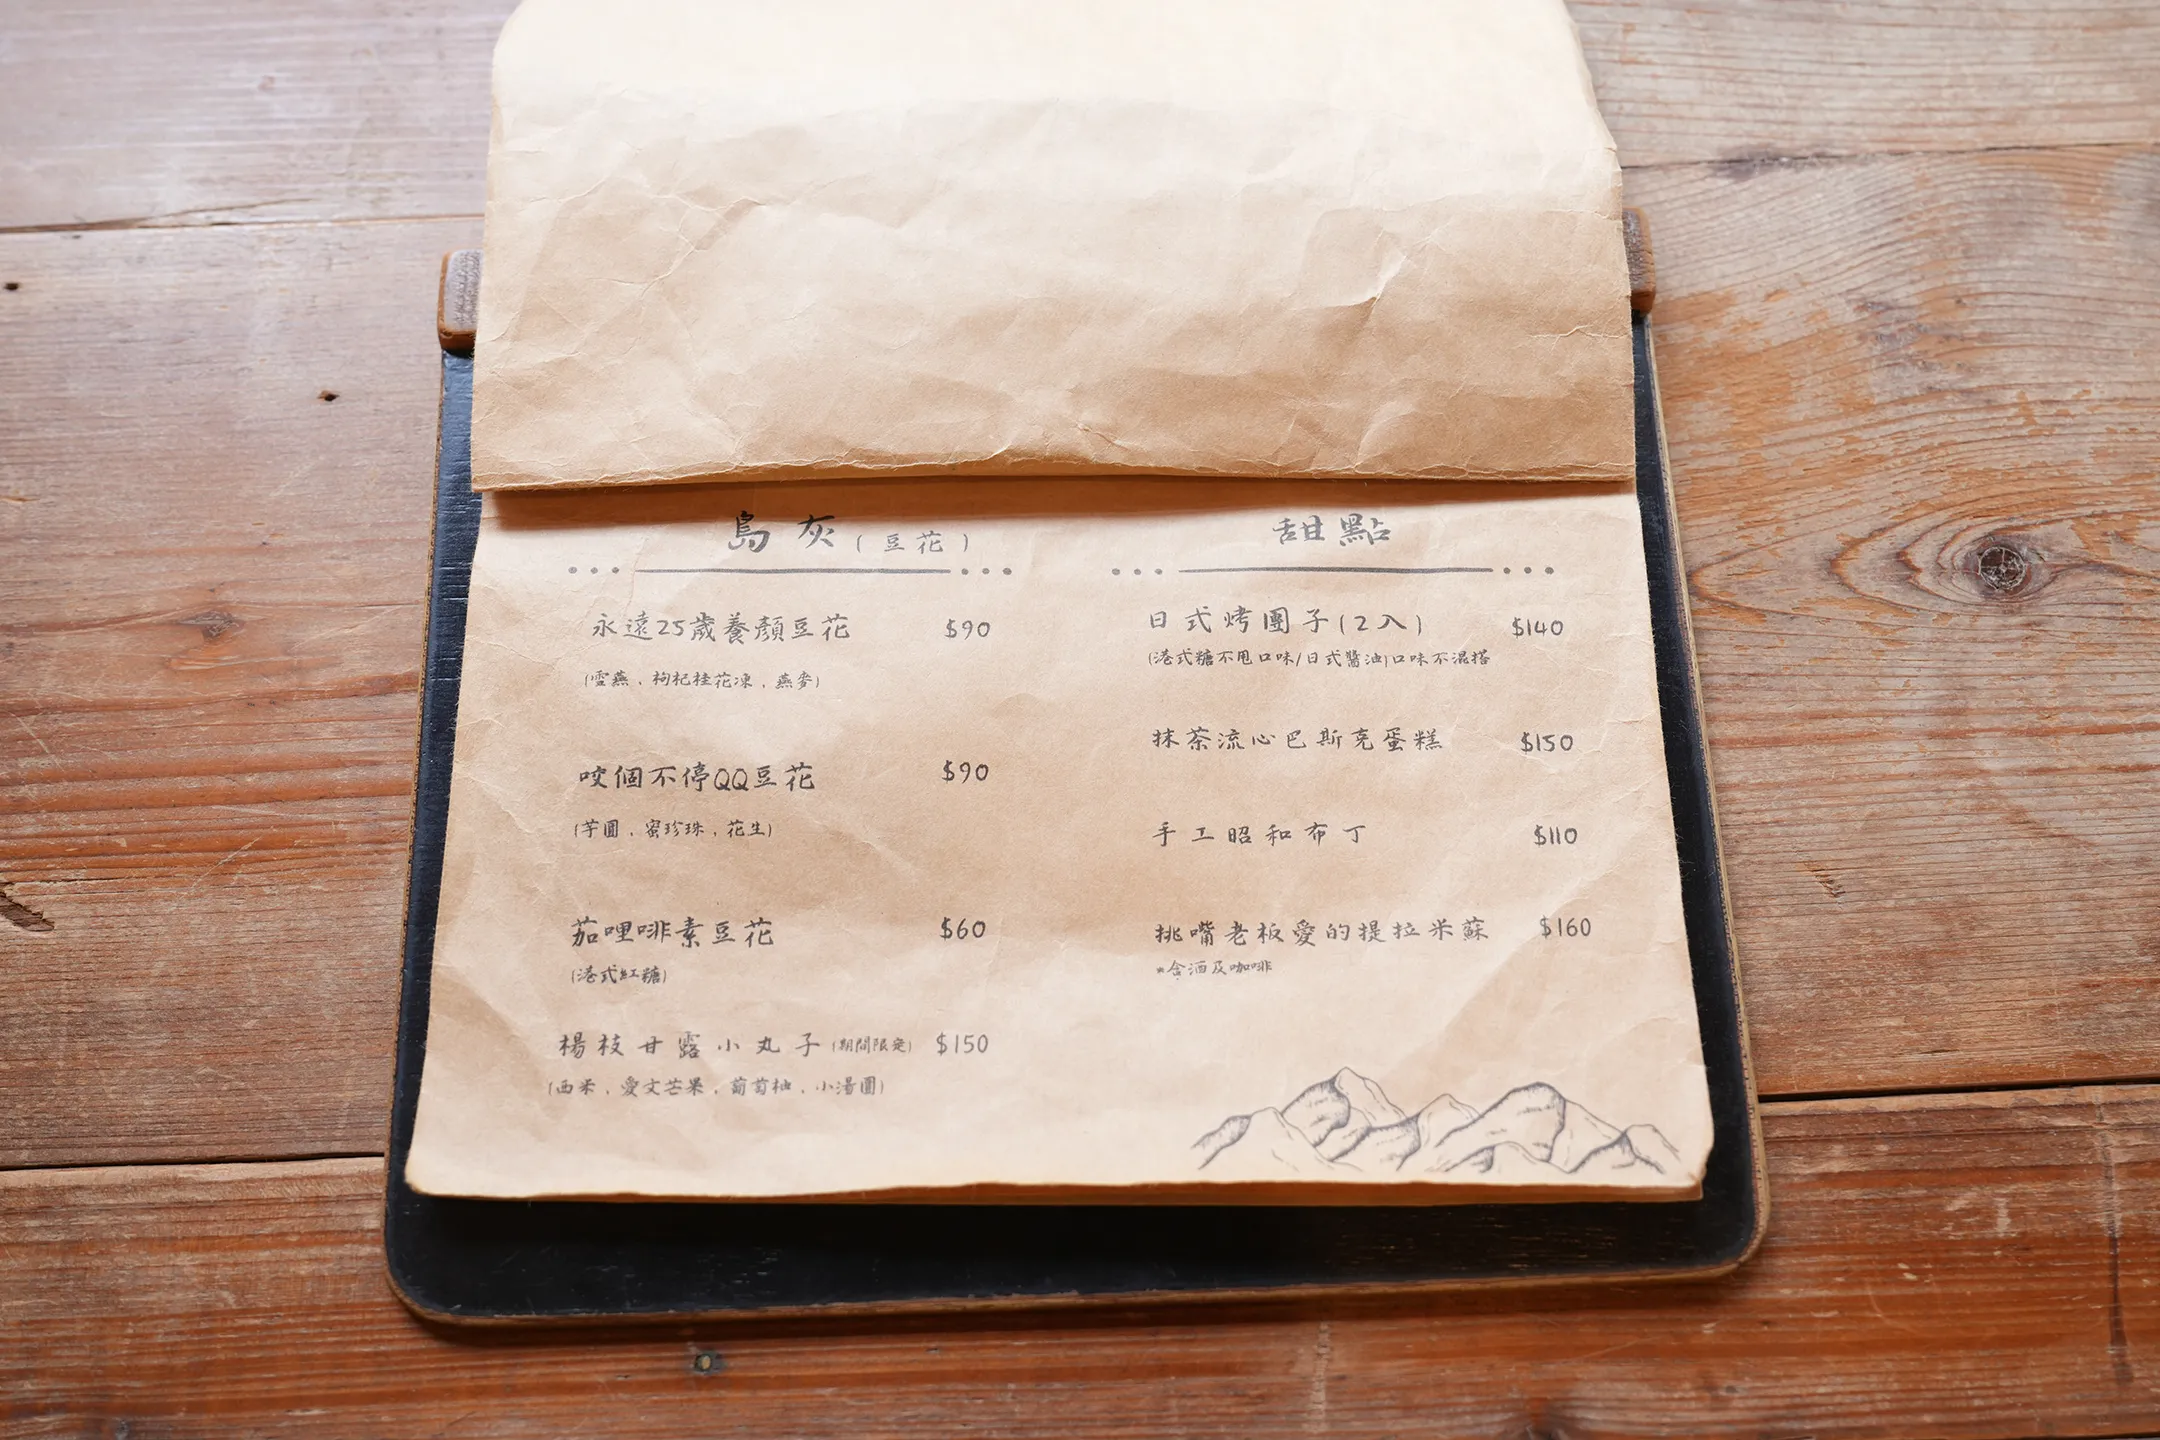 島灰(豆花)
永遠25歲養顏豆花 $90
(雪燕，枸杞桂花凍，燕麥)
咬個不停QQ豆花 $90
(芋圓，蜜珍珠，花生)
茄哩啡素豆花 $60
(港式紅糖)
楊枝甘露小丸子(期間限定) $150
(西米，愛文芒果，葡萄柚，小湯圓)
甜點
日式烤團子(2入) $140
(港式糖不甩口味/日式醬油)口味不混搭
抹茶流心巴斯克蛋糕 $150
手工昭和布丁 $110
挑嘴老板愛的提拉米蘇 $160
*含酒及咖啡